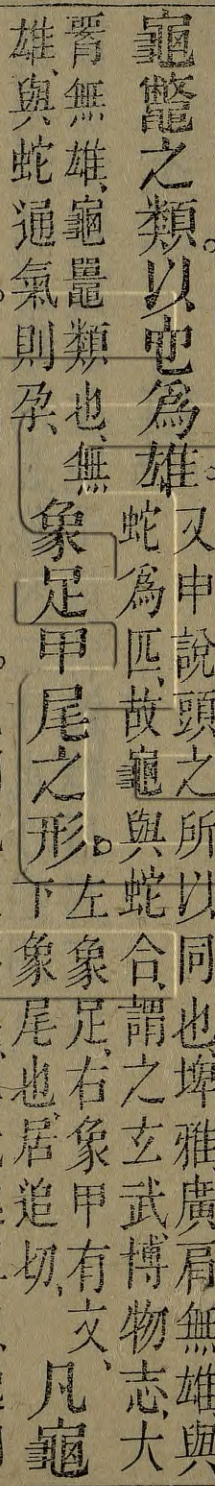 龜鼈之類。以它爲雄。
又申說頭之所以同也埤雅廣肩無雄與
蛇爲匹、故龜與蛇合、謂之玄武博物志、大
無雄、龜鼉類也、無
雄、與蛇通氣則孕、
象足甲尾之形。
左象足、右象甲有文、
下象尾也、居追切、
凡龜